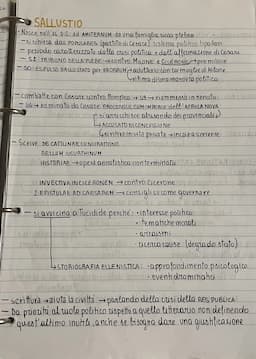 SALLUSTIO
- Nasce nell' 86 a.C. ad AMITERNUM da una famiglia ricca plebea
- si schiera dai POPULARES (partito di Cesare)
- periodo caratterizzato dalla crisi politica e dall'affermazione di Cesare
- 52: TRIBUNO DELLA PLEBE → contro Milone e Cicerone
- 50: ESPULSO DAL SENATO per
- combatte con Cesare contro Pompeo → 49 → riammesso in senato
- 46 → nominato da Cesare PROCONSOLE DELL' AFRICA NOVA
si arricchisce abusando dei provinciali
ACCUSATO DI CONCUSSIONE
entra in vita privata → inizia a scrivere
- SCRIVE: DE CATILINAE CONIURATIONE
BELLUM IUGURTHINUM
HISTORIAE → opera annalistica non terminata
INVECTIVA IN CICERONEM → contro Cicerone
EPISTULAE AD CAESAREM → consigli su come governare
- si avvicina a Tucidide perché: · interesse politico
· tematiche morali
· arcaismi
· ricerca cause (degrado stato)
→ STORIOGRAFIA ELLENISTICA: · approfondimento psicologico
· eventi drammatici
- scrittura → aiuta la civiltà → parlando della crisi della RES PUBLICA
Dà priorità al ruolo politico rispetto a quello letterario non definendo
quest'ultimo inutile, anche se bisogna dare una giustificazione